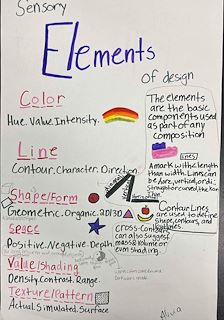 Sensory
Elements
of design
Color
Hue. Value. Intensity.
The elements
are the basic
components used
as part of any
composition
Line
Contour. Character. Direction.
Lines
A mark with length
than width. Lines can
be horiz, vertical, or di.
Straight or curved, thick or
Shape/Form
Geometric. Organic. 2D/3D
Contour Lines
are used to define
shape, contours, and
outlines
Space
Positive. Negative. Depth
Cross-Contours
can also suggest
mass & Volume or
even shading.
Value/Shading
Density. Contrast. Range.
Texture/Pattern
Actual. Simulated. Surface
Alivia